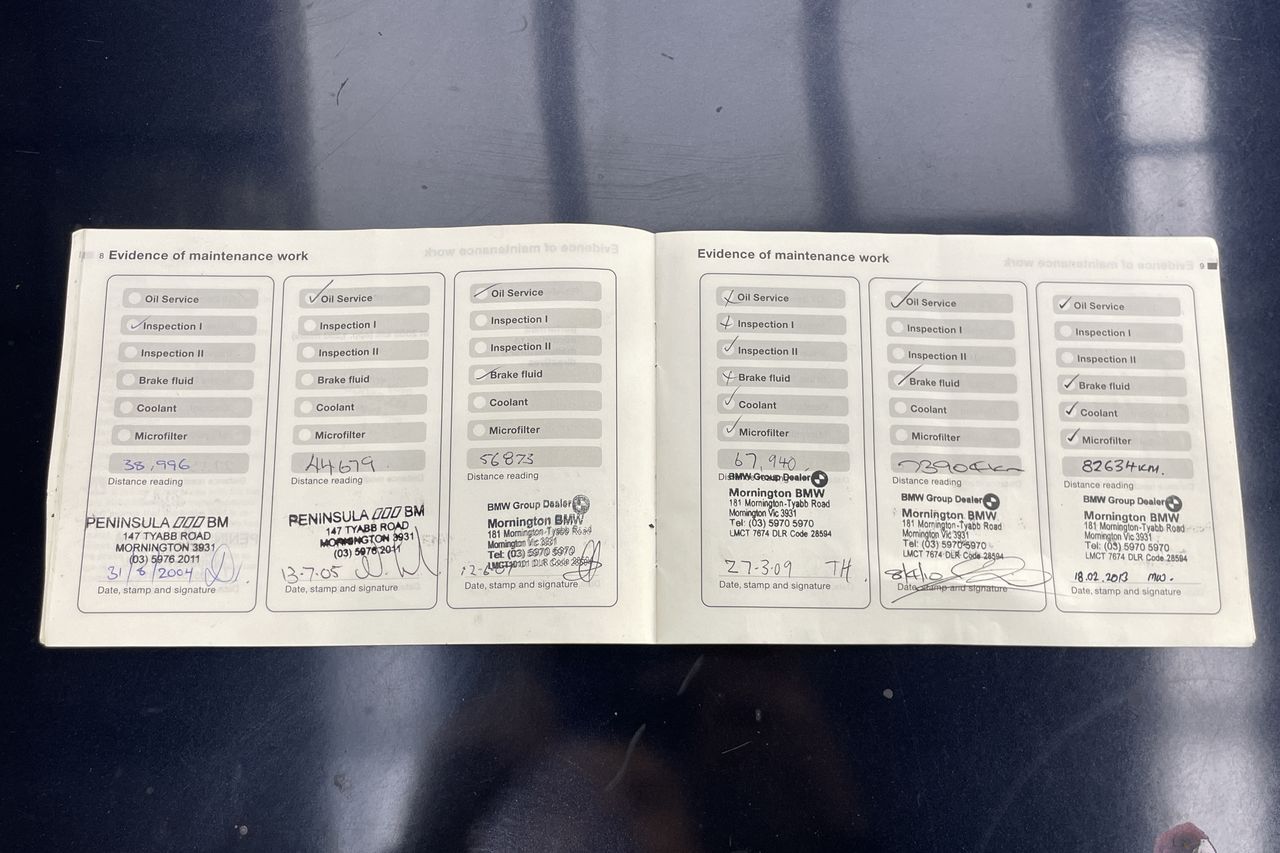 8 Evidence of maintenance work
Oil Service
Inspection I
Inspection II
Brake fluid
Coolant
Microfilter
38,996
Distance reading
PENINSULA BM
147 TYABB ROAD
MORNINGTON 3931
(03) 5976 2011
31/8/2004
Date, stamp and signature
Oil Service
Inspection I
Inspection II
Brake fluid
Coolant
Microfilter
44679
Distance reading
PENINSULA BM
147 TYABB ROAD
MORNINGTON 3931
(03) 5976 2011
13-7-05
Date, stamp and signature
Oil Service
Inspection I
Inspection II
Brake fluid
Coolant
Microfilter
56873
Distance reading
BMW Group Dealer
Mornington BMW
181 Mornington-Tyabb Road
Mornington Vic 3931
Tel: (03) 5970 5970
DLR Code 28594
Date, stamp and signature
Evidence of maintenance work 9
Oil Service
Inspection I
Inspection II
Brake fluid
Coolant
Microfilter
67,940
Distance reading
BMW Group Dealer
Mornington BMW
181 Mornington-Tyabb Road
Mornington Vic 3931
Tel: (03) 5970 5970
LMCT 7674 DLR Code 28594
27-3-09 TH
Date, stamp and signature
Oil Service
Inspection I
Inspection II
Brake fluid
Coolant
Microfilter
73904km
Distance reading
BMW Group Dealer
Mornington BMW
181 Mornington-Tyabb Road
Mornington Vic 3931
Tel: (03) 5970 5970
LMCT 7674 DLR Code 28594
Date, stamp and signature
Oil Service
Inspection I
Inspection II
Brake fluid
Coolant
Microfilter
82634KM.
Distance reading
BMW Group Dealer
Mornington BMW
181 Mornington-Tyabb Road
Mornington Vic 3931
Tel: (03) 5970 5970
LMCT 7674 DLR Code 28594
18.02.2013 MW.
Date, stamp and signature